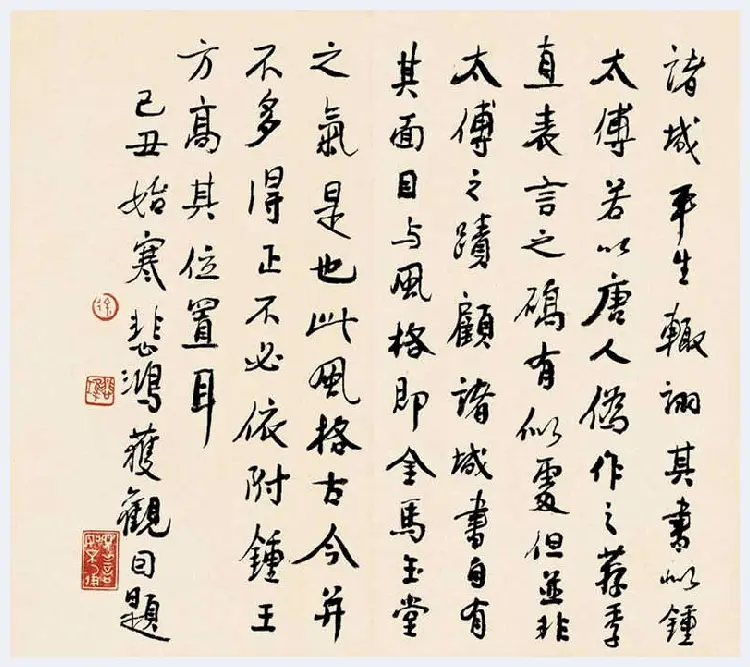 諸城平生輙詡其書似鍾
太傅若以唐人偽作之荐季
直表言之确有似處但並非
太傅之蹟顧諸城書自有
其面目与風格即金馬玉堂
之氣是也此風格古今并
不多得正不必依附鍾王
方高其位置耳
己丑始寒悲鴻獲觀因題
徐
悲鴻